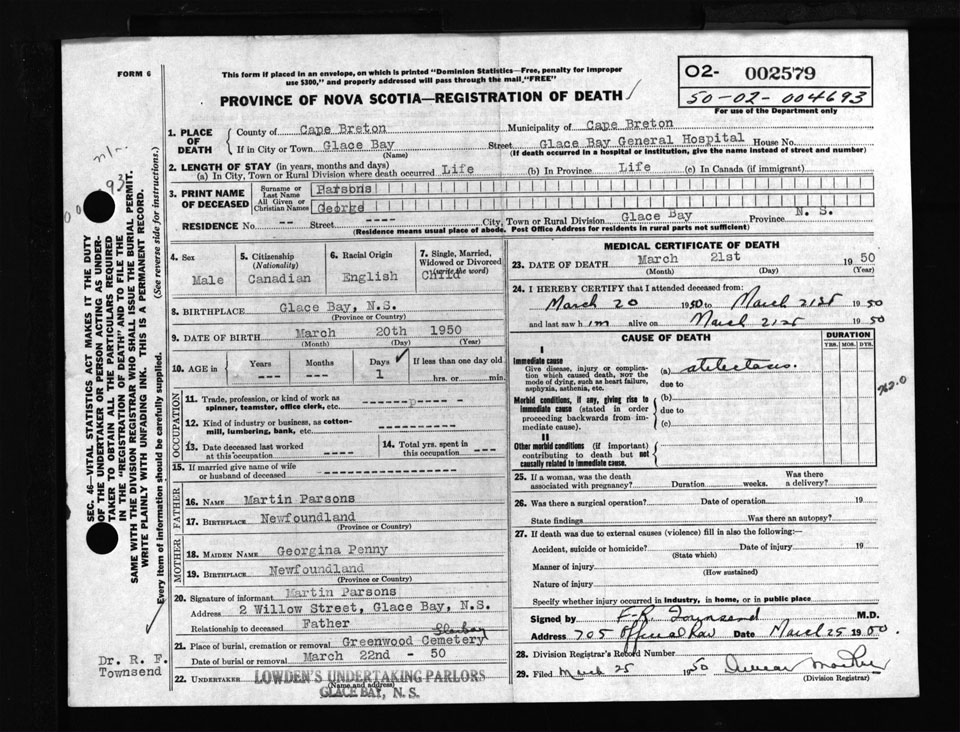 FORM 6
This form if placed in an envelope, on which is printed "Dominion Statistics—Free, penalty for improper
use $300," and properly addressed will pass through the mail, "FREE"
PROVINCE OF NOVA SCOTIA—REGISTRATION OF DEATH
02- 002579
50-02-004693
For use of the Department only
1. PLACE OF DEATH
County of Cape Breton Municipality of Cape Breton
If in City or Town Glace Bay Street Glace Bay General Hospital House No.
(Name) (If death occurred in a hospital or institution, give the name instead of street and number)
2. LENGTH OF STAY (in years, months and days)
(a) In City, Town or Rural Division where death occurred Life (b) In Province Life (c) In Canada (if immigrant)
3. PRINT NAME OF DECEASED
Surname or Last Name Parsons
All Given or Christian Names George
RESIDENCE No. -- Street ---- City, Town or Rural Division Glace Bay Province N. S.
(Residence means usual place of abode. Post Office Address for residents in rural parts not sufficient)
4. Sex Male
5. Citizenship (Nationality) Canadian
6. Racial Origin English
7. Single, Married, Widowed or Divorced (write the word) Child
8. BIRTHPLACE Glace Bay, N.S.
(Province or Country)
9. DATE OF BIRTH March 20th 1950
(Month) (Day) (Year)
10. AGE in Years --- Months --- Days 1 If less than one day old
hrs. or min.
OCCUPATION
11. Trade, profession, or kind of work as
spinner, teamster, office clerk, etc.
12. Kind of industry or business, as cotton-
mill, lumbering, bank, etc.
13. Date deceased last worked
at this occupation ----
14. Total yrs. spent in
this occupation ----
15. If married give name of wife
or husband of deceased
FATHER
16. NAME Martin Parsons
17. BIRTHPLACE Newfoundland
(Province or Country)
MOTHER
18. MAIDEN NAME Georgina Penny
19. BIRTHPLACE Newfoundland
(Province or Country)
20. Signature of informant Martin Parsons
Address 2 Willow Street, Glace Bay, N.S.
Relationship to deceased Father
21. Place of burial, cremation or removal Greenwood Cemetery
Date of burial or removal March 22nd - 50
22. UNDERTAKER LOWDEN'S UNDERTAKING PARLORS
(Name and address)
GLACE BAY, N. S.
MEDICAL CERTIFICATE OF DEATH
23. DATE OF DEATH March 21st 1950
(Month) (Day) (Year)
24. I HEREBY CERTIFY that I attended deceased from:
March 20 1950 to March 21st 1950
and last saw him alive on March 21st 1950
CAUSE OF DEATH
DURATION
YRS. MOS. DYS.
I
Immediate cause
Give disease, injury or complica-
tion which caused death, NOT the
mode of dying, such as heart failure,
asphyxia, asthenia, etc.
(a) atelectasis.
due to
762.0
Morbid conditions, if any, giving rise to
immediate cause (stated in order
proceeding backwards from im-
mediate cause).
(b)
due to
(c)
II
Other morbid conditions (if important)
contributing to death but not
causally related to immediate cause.
25. If a woman, was the death
associated with pregnancy? Duration weeks. Was there
a delivery?
26. Was there a surgical operation? Date of operation 19
State findings Was there an autopsy?
27. If death was due to external causes (violence) fill in also the following:—
Accident, suicide or homicide? Date of injury 19
(State which)
Manner of injury
(How sustained)
Nature of injury
Specify whether injury occurred in industry, in home, or in public place
Signed by Townsend M.D.
Address 705 Date March 25 1950.
28. Division Registrar's Record Number
29. Filed March 25 1950
(Division Registrar)
SEC. 46—VITAL STATISTICS ACT MAKES IT THE DUTY
OF THE UNDERTAKER OR PERSON ACTING AS UNDER-
TAKER TO OBTAIN ALL THE PARTICULARS REQUIRED
IN THE "REGISTRATION OF DEATH" AND TO FILE THE
SAME WITH THE DIVISION REGISTRAR WHO SHALL ISSUE THE BURIAL PERMIT.
WRITE PLAINLY WITH UNFADING INK. THIS IS A PERMANENT RECORD.
Every item of information should be carefully supplied. (See reverse side for instructions.)
Dr. R. F.
Townsend